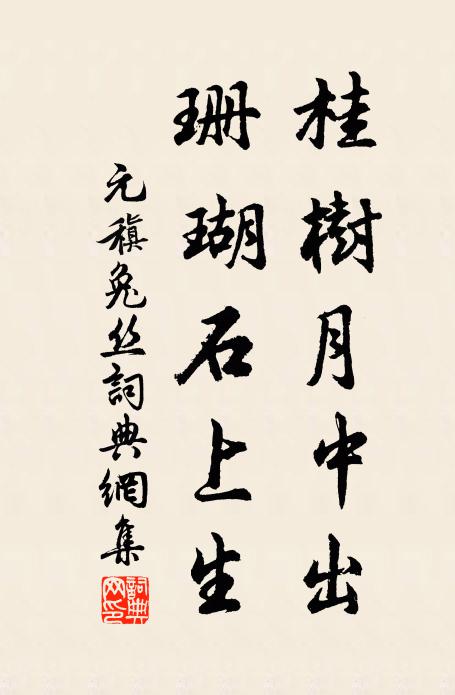 桂樹月中出
珊瑚石上生
元稹兔丝詞典網集
詞典網印